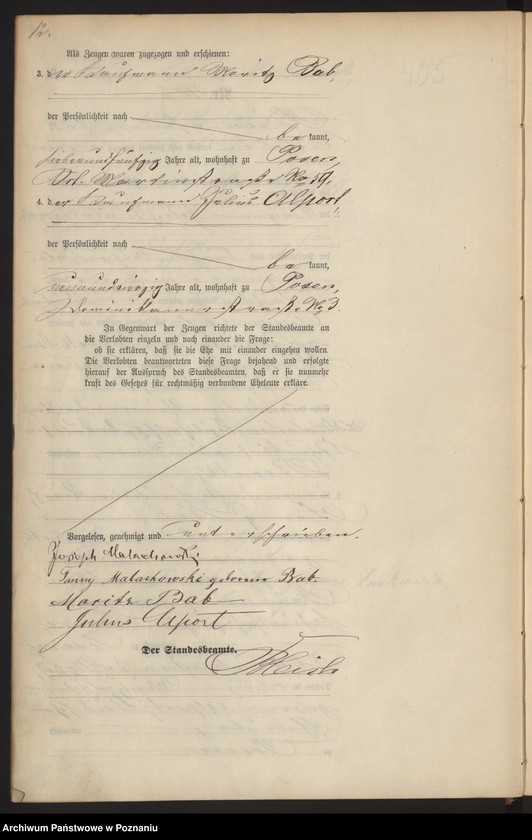 12.
Als Zeugen waren zugezogen und erschienen:
3. der Kaufmann Moritz Bab,
der Persönlichkeit nach
be kannt,
siebenundfünfzig Jahre alt, wohnhaft zu Posen,
Skt. Martinstraße No 59,
4. der Kaufmann Julius Alport,
der Persönlichkeit nach
be kannt,
Jahre alt, wohnhaft zu Posen,
Dominikanerstraße No 3.
In Gegenwart der Zeugen richtete der Standesbeamte an
die Verlobten einzeln und nach einander die Frage:
ob sie erklären, daß sie die Ehe mit einander eingehen wollen.
Die Verlobten beantworteten diese Frage bejahend und erfolgte
hierauf der Ausspruch des Standesbeamten, daß er sie nunmehr
kraft des Gesetzes für rechtmäßig verbundene Eheleute erkläre.
Vorgelesen, genehmigt und unterschrieben.
Joseph Malachowski
Fanny Malachowski geborene Bab.
Moritz Bab
Julius Alport
Der Standesbeamte.
Archiwum Państwowe w Poznaniu